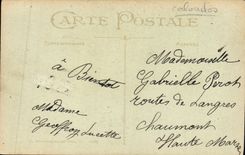 calvados
CARTE POSTALE
à Bientot
Madame
Geoffroy Lucette
Mademoiselle
Gabrielle Perot
route de Langres
Chaumont
Haute Marne